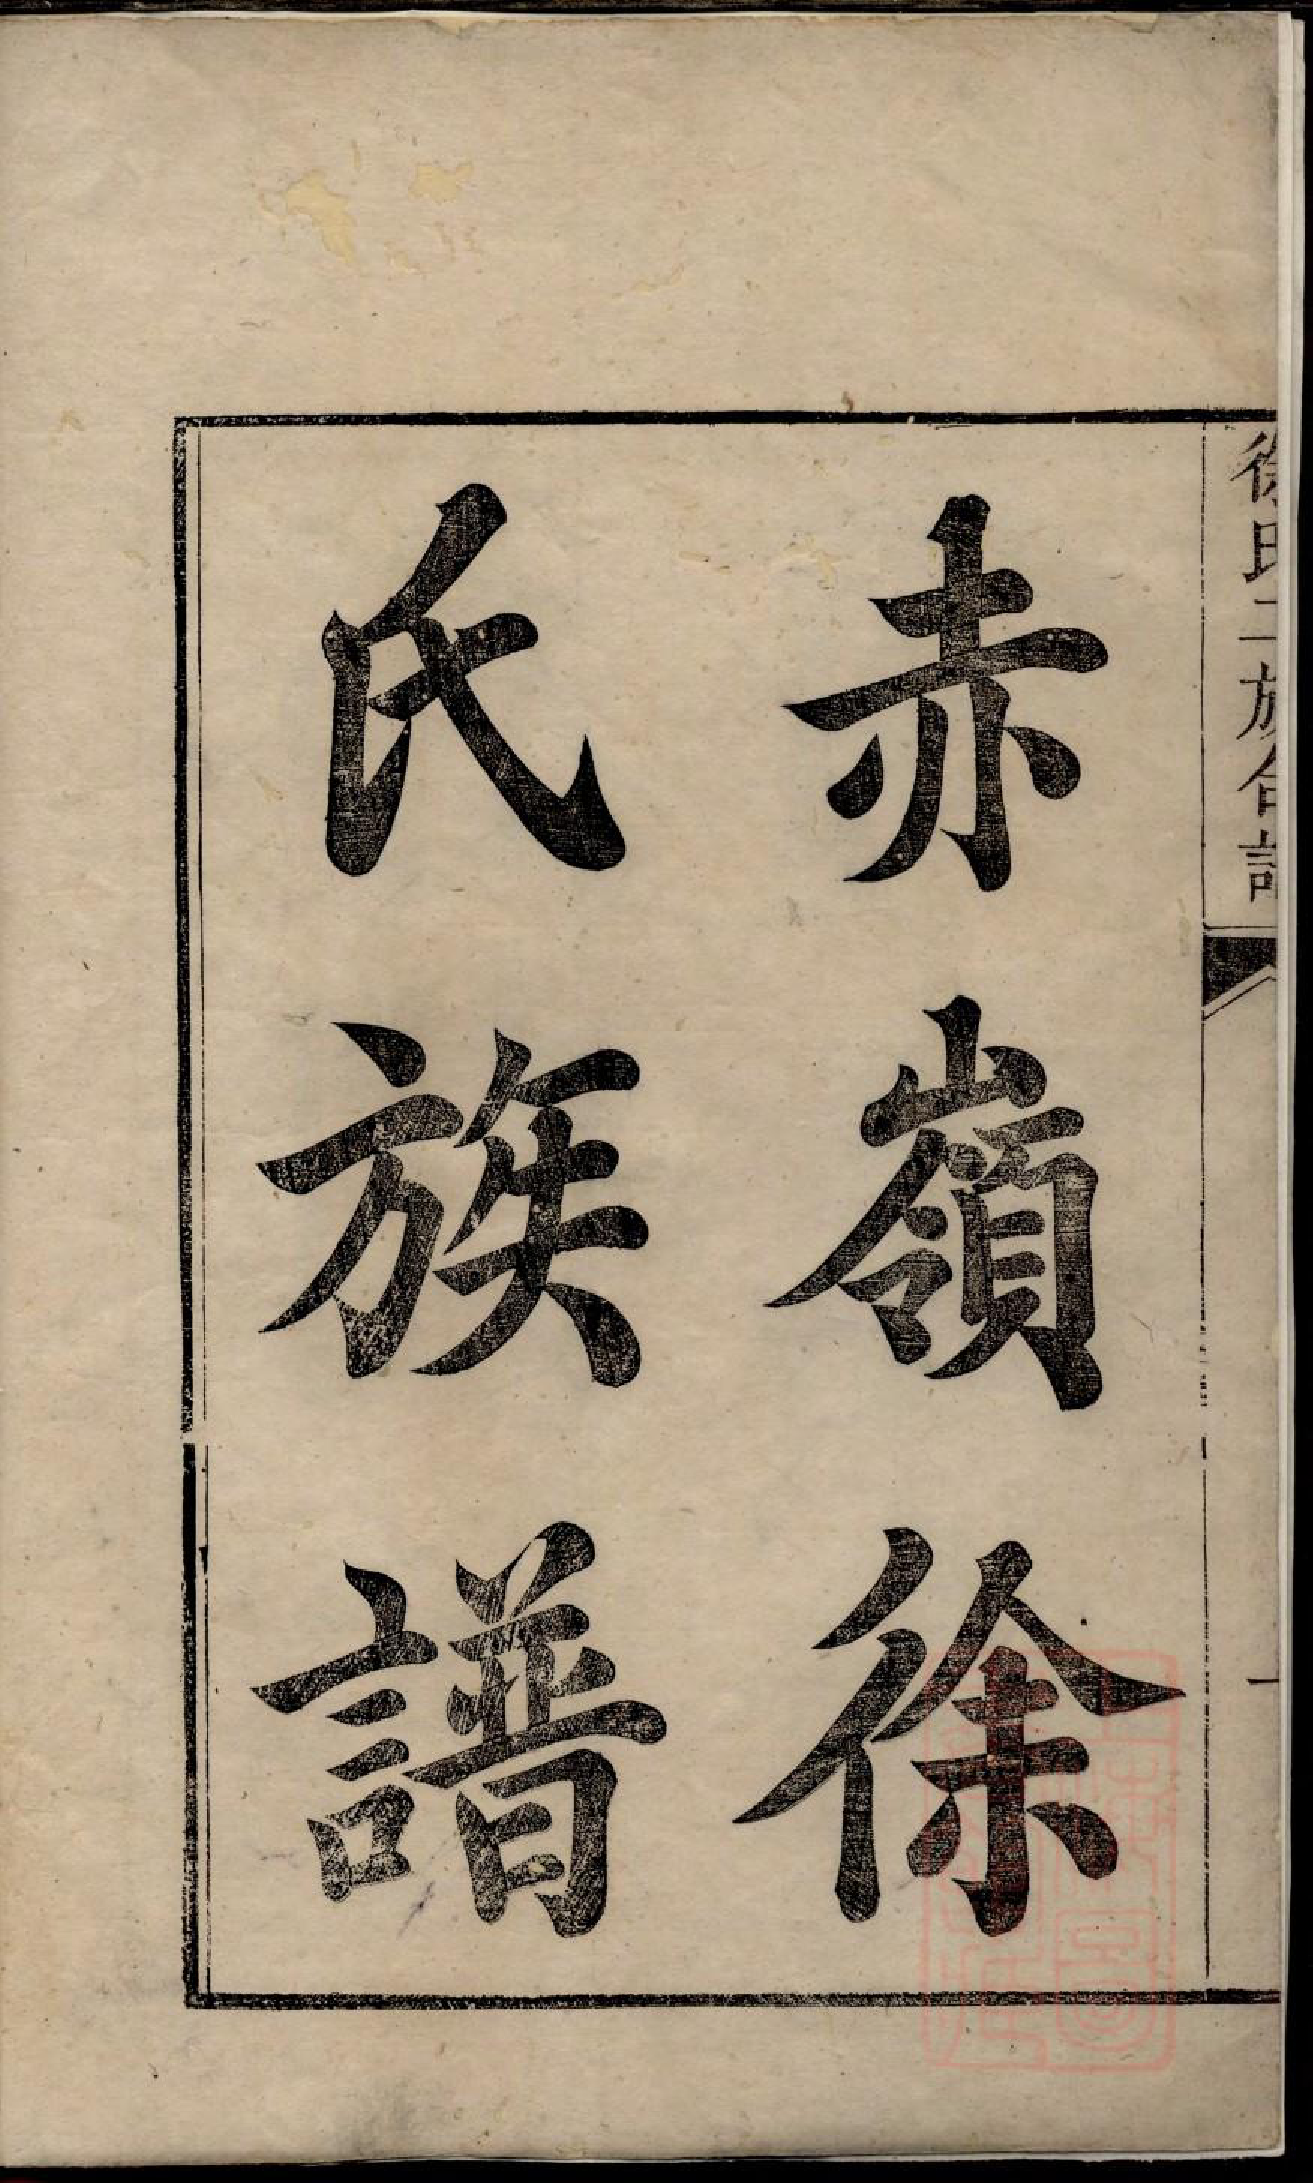 徐氏二族合譜
一
赤嶺徐
氏族譜